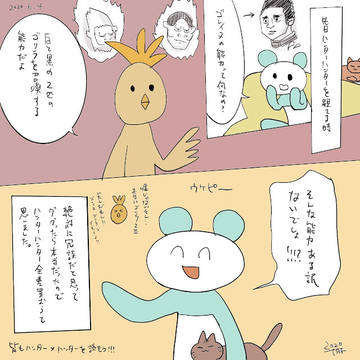 昔日ハンターハンターを観てる時
ゴレイヌの能力って何なの?
2020.6.4
白と黒の2匹の
ゴリラを召喚する
能力だよ
そんな能力ある訳
ないでしょ!!!?
ウケピー
絶対に冗談だと思って
ググったら本当だったので
ハンターハンター全巻買おうって
思いました。
皆もハンター×ハンターを読もう!!!
2020